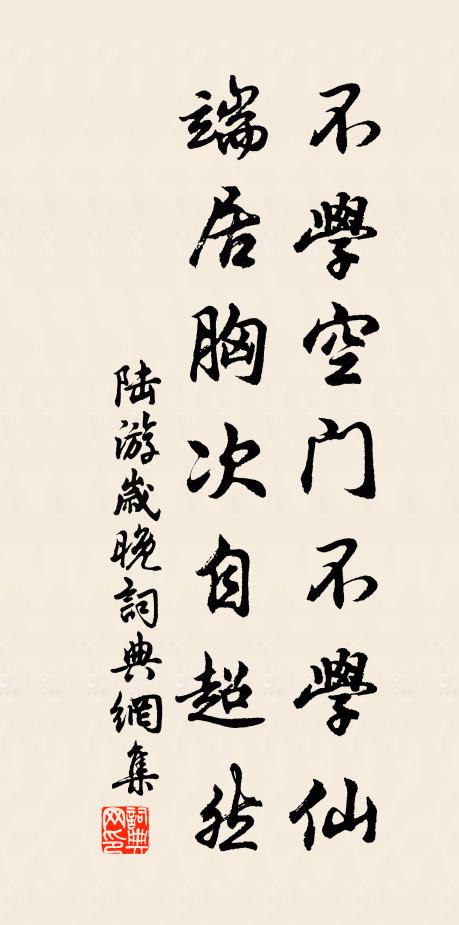 不學空门不學仙
端居胸次自超然
陆游歲晚詞典網集
詞典网印